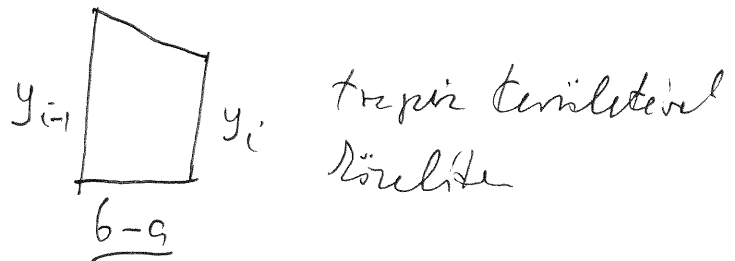 y_{i-1}
y_i
trapéz területével
közelítem
b-a